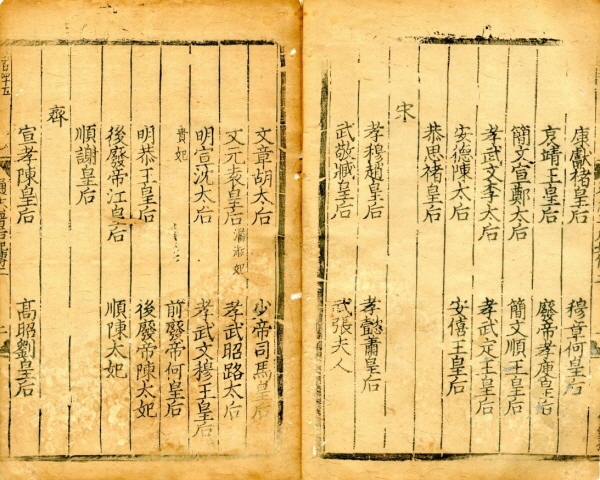 康獻褚皇后　穆章何皇后
哀靖王皇后　廢帝孝庾皇后
簡文宣鄭太后　簡文順王皇后
孝武文李太后　孝武定王皇后
安德陳太后　安僖王皇后
恭思褚皇后
宋
孝穆趙皇后　孝懿蕭皇后
武敬臧皇后　武張夫人
文章胡太后　少帝司馬皇后
文元袁皇后潘淑妃　孝武昭路太后
明宣沈太后　孝武文穆王皇后
貴妃　前廢帝何皇后
明恭王皇后　後廢帝陳太妃
後廢帝江皇后　順陳太妃
順謝皇后
齊
宣孝陳皇后　高昭劉皇后